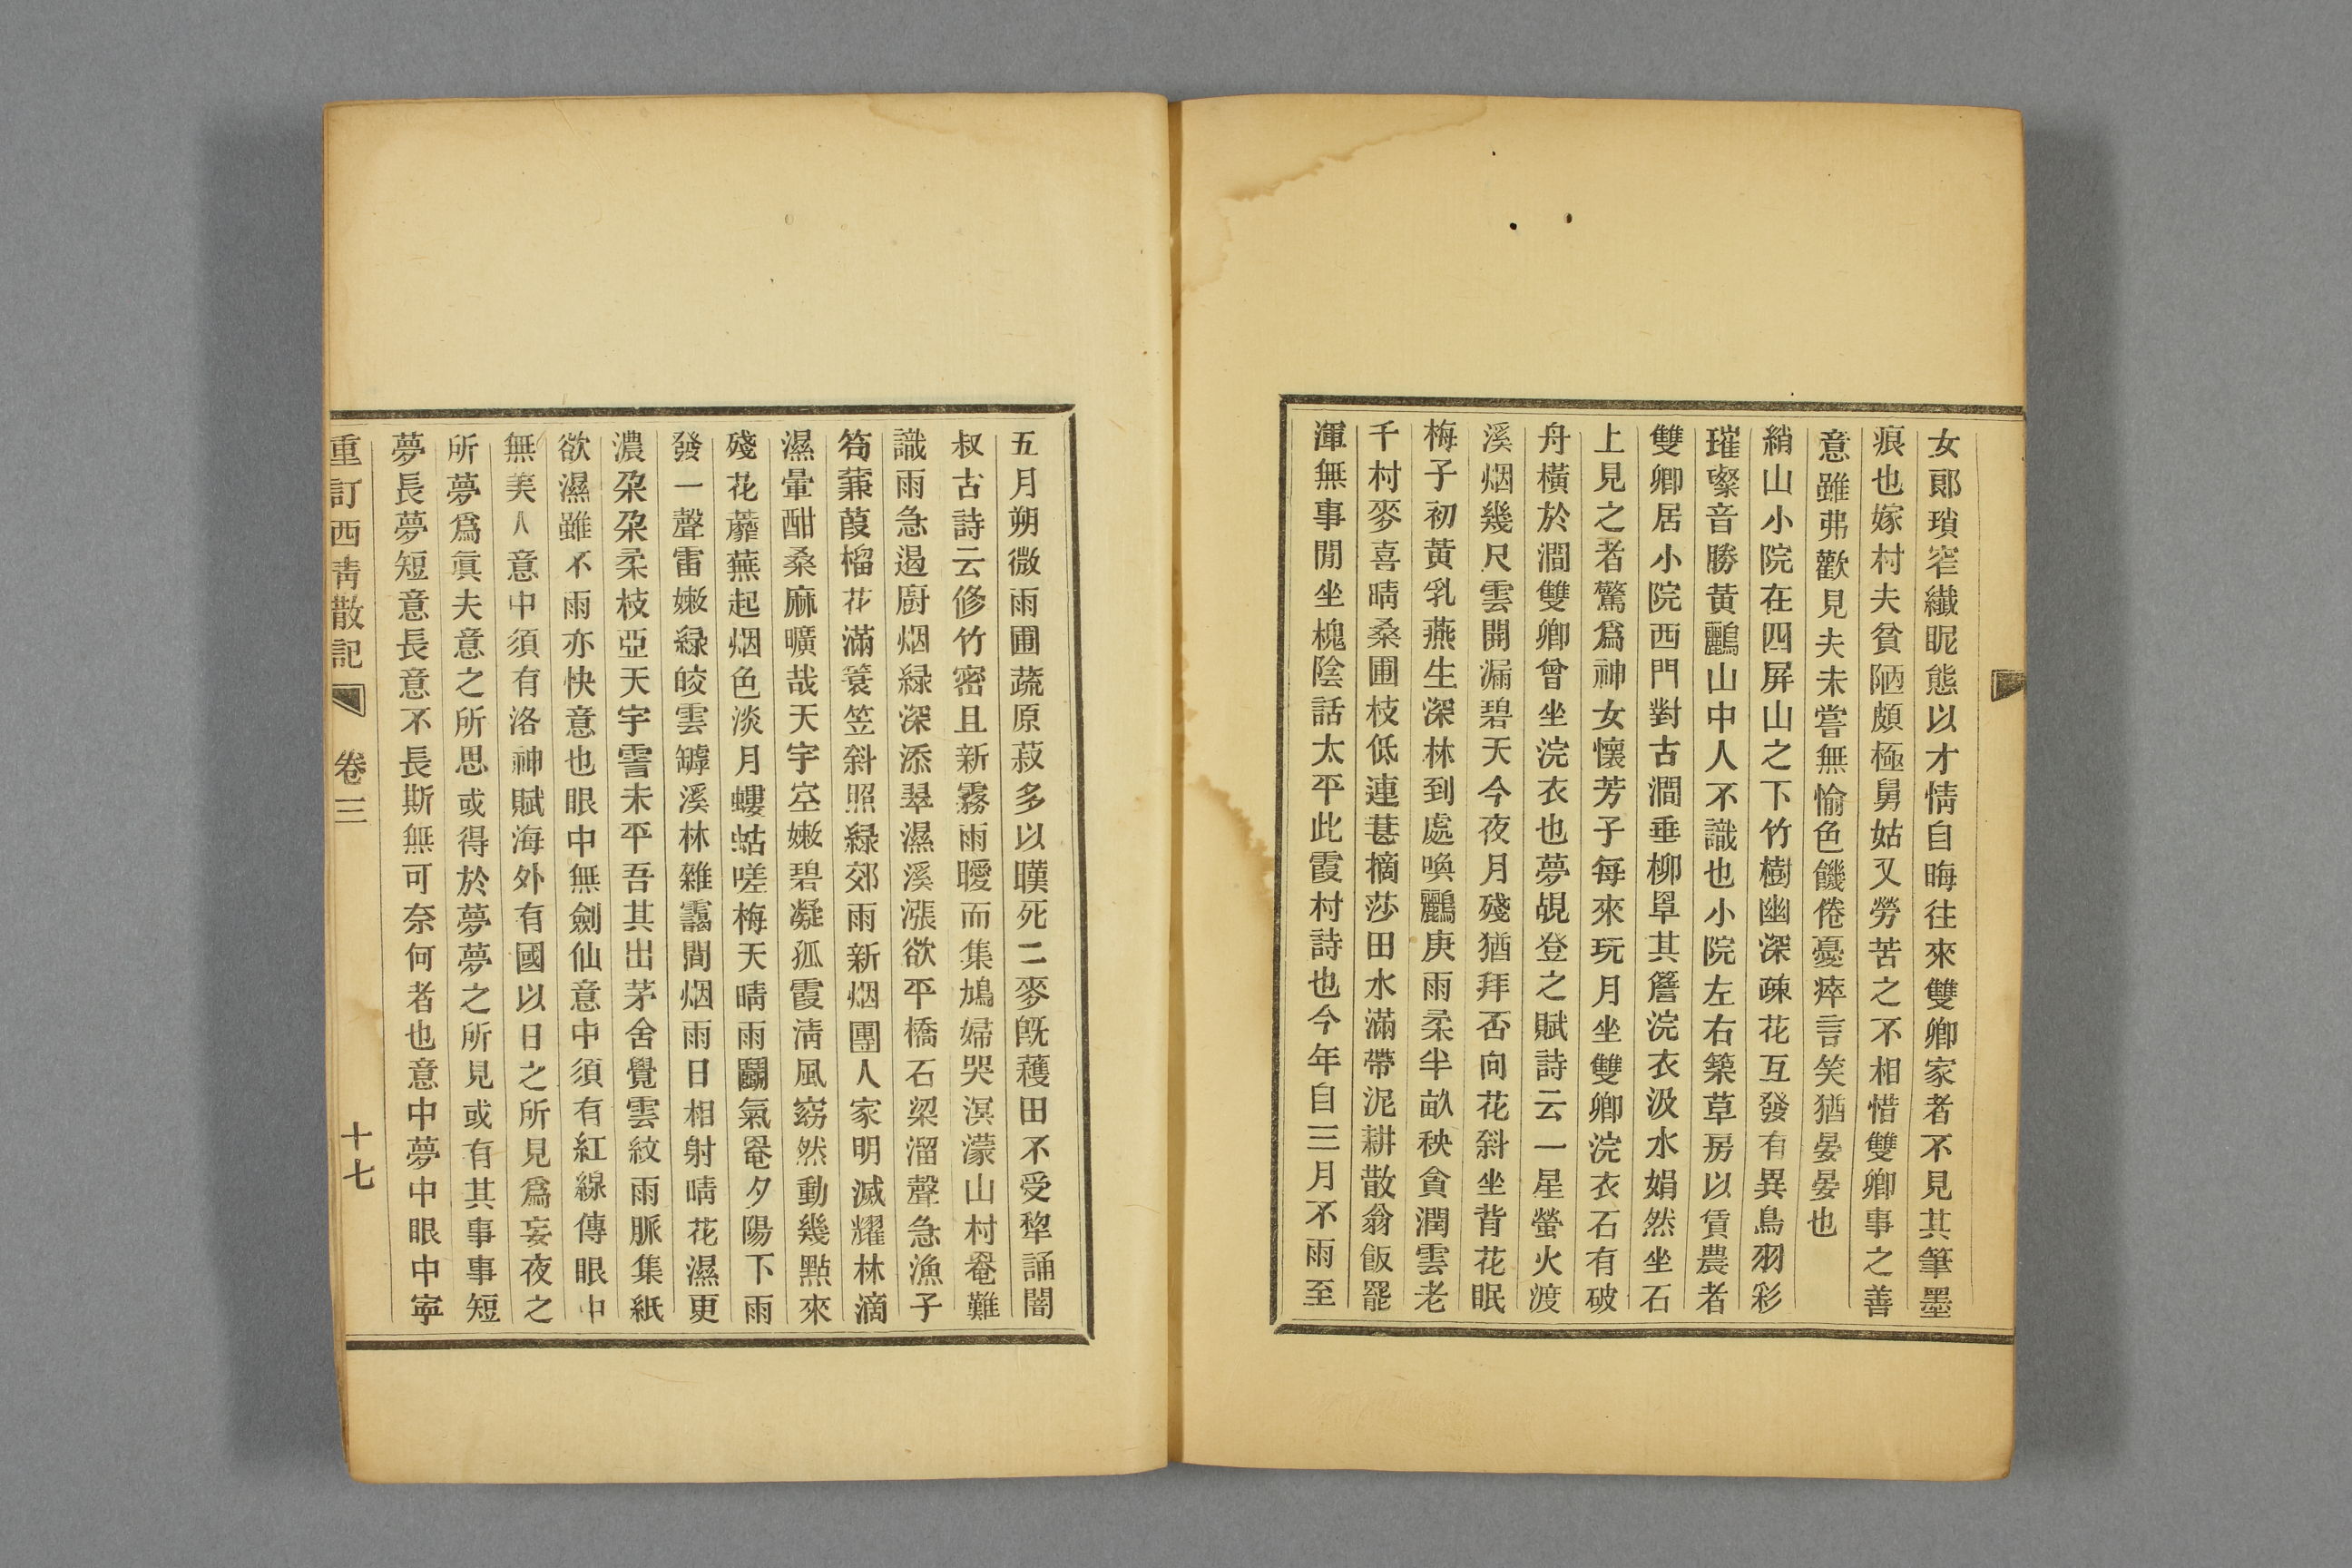 女郞瑣窄纖昵態以才情自晦往來雙卿家者不見其筆墨
痕也嫁村夫貧陋頗極舅姑又勞苦之不相惜雙卿事之善
意雖弗歡見夫未嘗無愉色饑倦憂瘁言笑猶晏晏也
綃山小院在四屏山之下竹樹幽深疎花互發有異鳥羽彩
璀璨音勝黃鸝山中人不識也小院左右築草房以賃農者
雙卿居小院西門對古澗垂柳罩其簷浣衣汲水娟然坐石
上見之者驚爲神女懷芳子每來玩月坐雙卿浣衣石有破
舟橫於澗雙卿曾坐浣衣也夢覘登之賦詩云一星螢火渡
溪烟幾尺雲開漏碧天今夜月殘猶拜否向花斜坐背花眠
梅子初黃乳燕生深林到處喚鸝庚雨柔半畝秧貪潤雲老
千村麥喜晴桑圃枝低連葚摘莎田水滿帶泥耕散翁飯罷
渾無事閒坐槐陰話太平此霞村詩也今年自三月不雨至
五月朔微雨圃蔬原菽多以暵死二麥旣穫田不受犂誦闇
叔古詩云修竹密且新霧雨曖而集鳩婦哭溟濛山村罨難
識雨急遏廚烟綠深添翠濕溪漲欲平橋石梁溜聲急漁子
筍蒹葭榴花滿蓑笠斜照綠郊雨新烟團人家明滅耀林滴
濕暈酣桑麻曠哉天宇空嫩碧凝孤霞淸風窈然動幾點來
殘花蘼蕪起烟色淡月螻蛄嗟梅天晴雨鬬氣罨夕陽下雨
發一聲雷嫩綠皎雲罅溪林雜靄間烟雨日相射晴花濕更
濃朶朶柔枝亞天宇霅未平吾其出茅舍覺雲紋雨脈集紙
欲濕雖不雨亦快意也眼中無劍仙意中須有紅線傳眼中
無美人意中須有洛神賦海外有國以日之所見爲妄夜之
所夢爲眞夫意之所思或得於夢夢之所見或有其事事短
夢長夢短意長意不長斯無可奈何者也意中夢中眼中寧
重訂西靑散記 卷三 十七